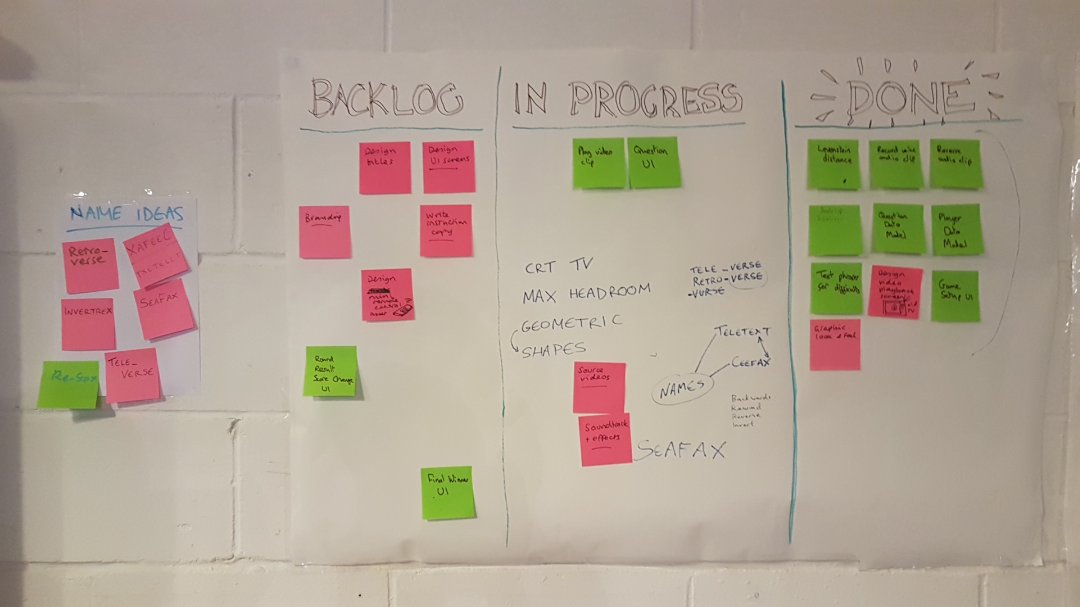 NAME IDEAS
Retro-
verse
XAFEEC
TXETELET
INVERTREX
SEAFAX
Re-Seax
TELE_
VERSE
BACKLOG
Design
titles
Design
UI screens
Branding
Write
instruction
copy
Design
Round
Result
Score Change
UI
Final Winner
UI
IN PROGRESS
Play video
clip
Question
UI
CRT TV
MAX HEADROOM
GEOMETRIC
SHAPES
TELE_VERSE
RETRO-VERSE
-VURSE
TELETEXT
CEEFAX
NAMES
Backwards
Rewind
Reverse
Invert
Source
videos
Soundtrack
+ effects
SEAFAX
DONE
Levenstein
distance
Record voice
audio clip
Reverse
audio clip
Question
Data
Model
Player
Data
Model
Test phrases
for difficulty
Design
video
playback
screen
TV
Game
Setup UI
Graphic
look & feel